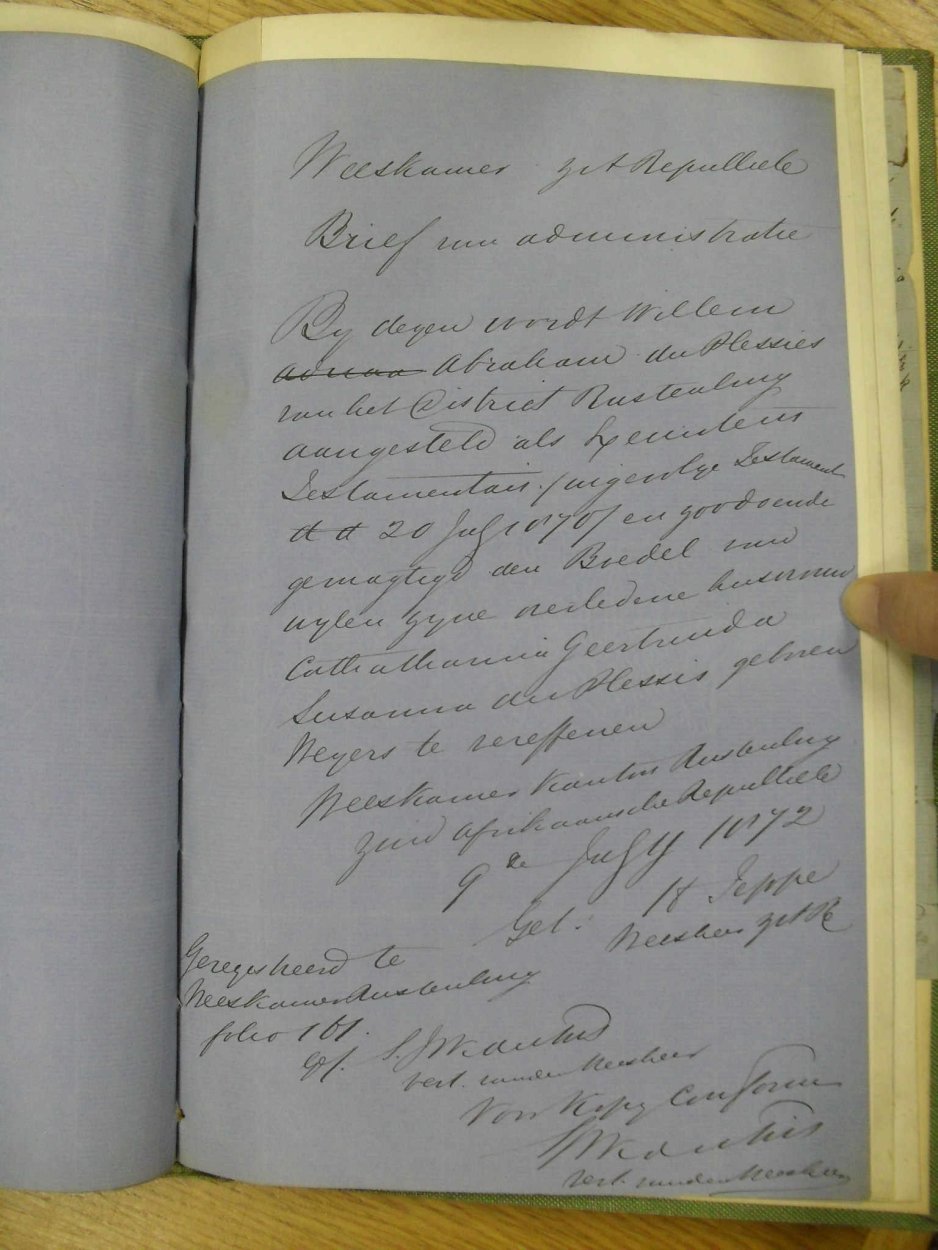 Weeskamer ZA Republiek
Brief van administratie
By dezen wordt Willem
Abraham du Plessies
van het District Rustenburg
aangesteld als Executeur
Testamentair (ingevolge Testament
dd 20 July 1870) en zoodoende
gemagtigd den Boedel van
wylen zyne overledene huisvrouw
Cathatharina Geertruida
Susanna du Plessis geboren
Weyers te vereffenen
Weeskamer Kantoor Rustenburg
Zuid Afrikaansche Republiek
9de July 1872
Get: H Jeppe
Weesheer ZAR
Geregisteerd te
Weeskamer Rustenburg
folio 161.
vert. van den Weesheer
Voor Kopy Conform
vert. van den Weesheer